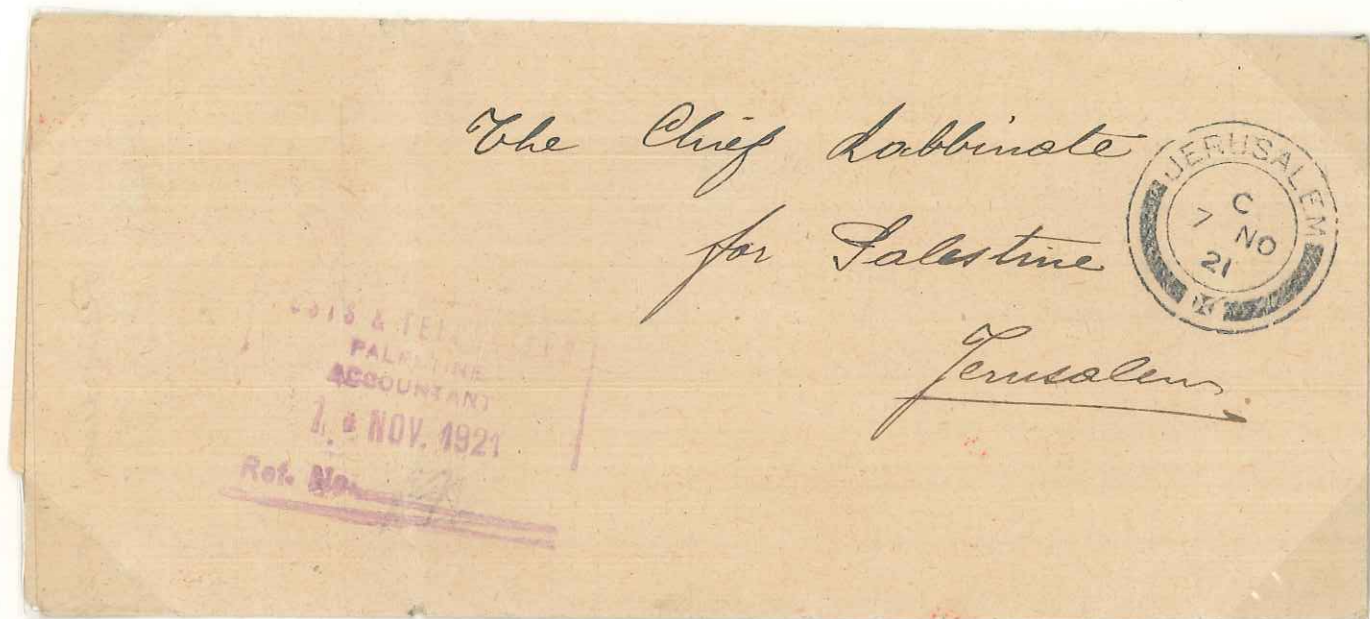 The Chief Rabbinate
for Palestine
Jerusalem
JERUSALEM
C
7 NO
21
PALESTINE
ACCOUNTANT
NOV. 1921
Ref. No.